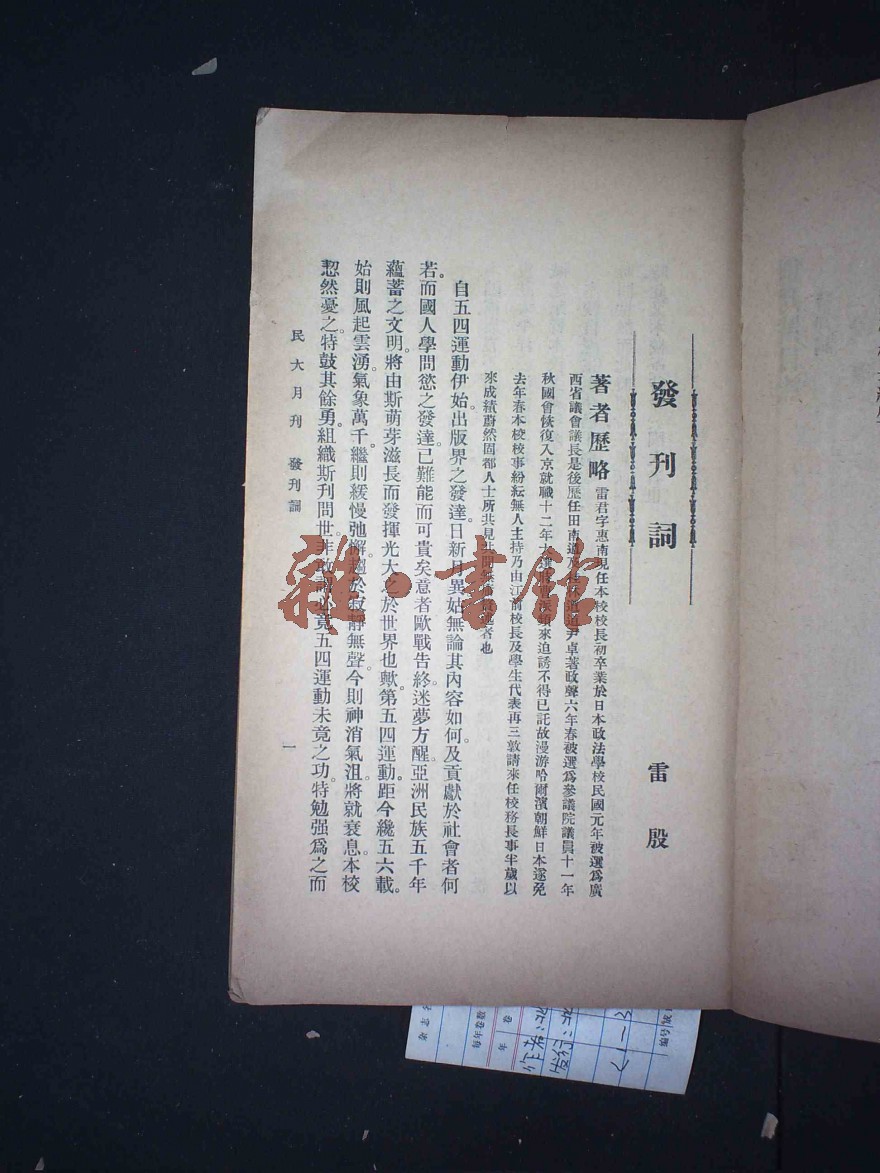 發刊詞
雷殷
著者歷略 雷君字惠南現任本校校長初卒業於日本政法學校民國元年被選爲廣
西省議會議長是後歷任田南道及桂林道道尹卓著政聲六年春被選爲參議院議員十一年
秋國會恢復入京就職十二年大選
來迫誘不得已託故漫游哈爾濱朝鮮日本遂免
去年春本校校事紛紜無人主持乃由江前校長及學生代表再三敦請來任校務長事半歲以
來成績蔚然固都人士所共見共聞無
者也
自五四運動伊始。出版界之發達。日新月異。姑無論其內容如何。及貢獻於社會者何
若。而國人學問慾之發達。已難能而可貴矣。意者歐戰告終。迷夢方醒。亞洲民族五千年
蘊蓄之文明。將由斯萌芽滋長而發揮光大之於世界也歟。第五四運動。距今纔五六載。
始則風起雲湧。氣象萬千。繼則緩慢弛懈。趨於寂靜無聲。今則神消氣沮。將就衰息。本校
恝然憂之。特鼓其餘勇。組織斯刊問世。非敢謂必竟五四運動未竟之功。特勉强爲之而
民大月刊 發刊詞
一
雜·書館